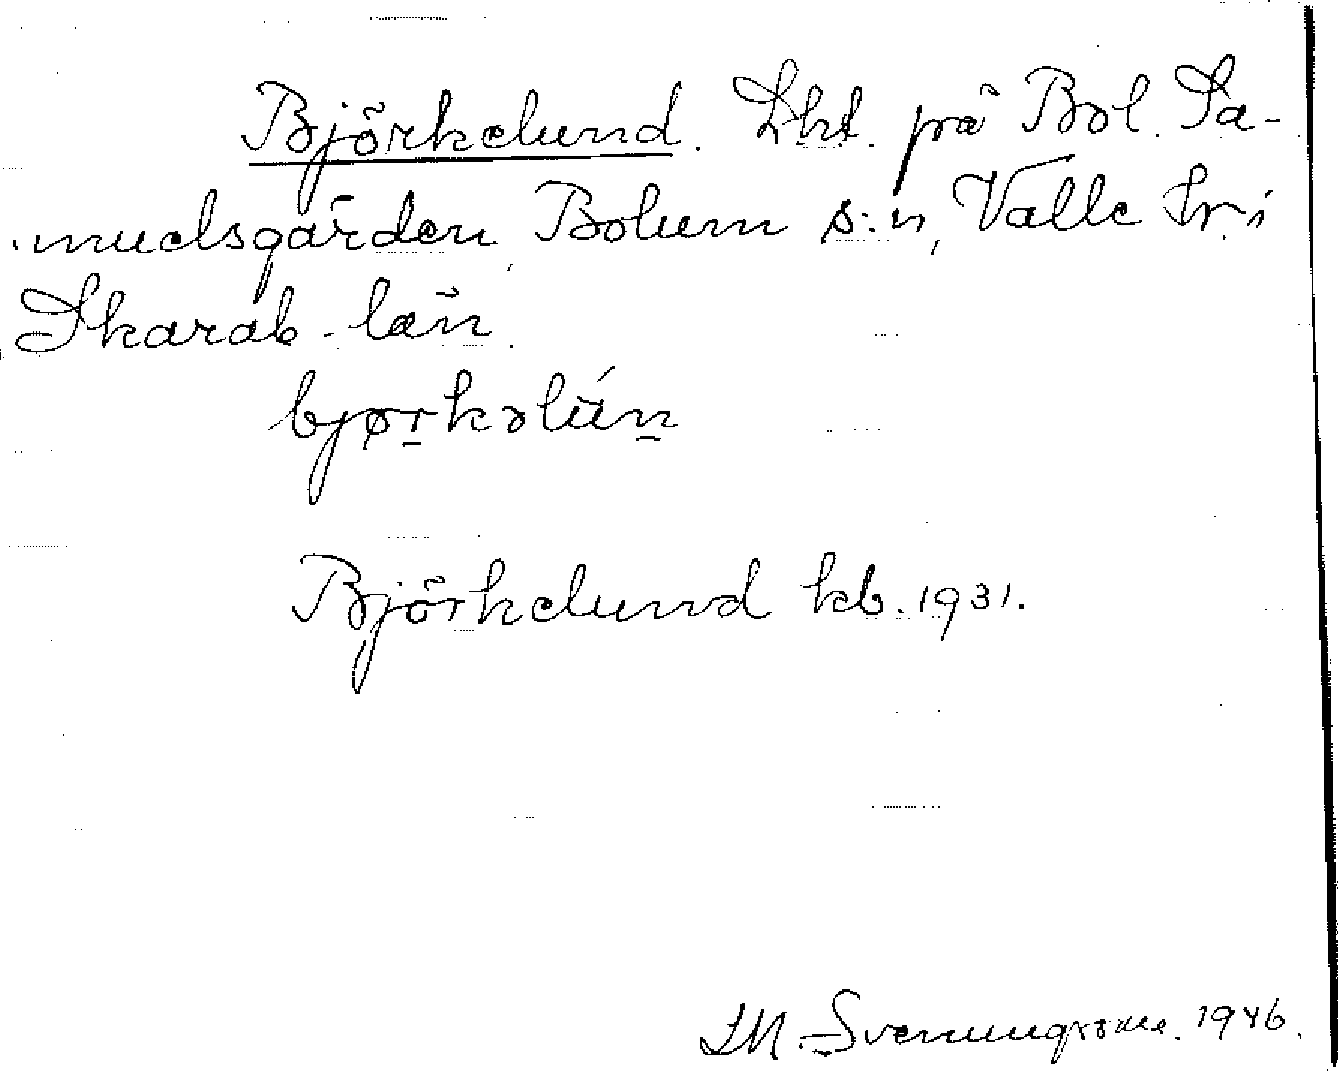 Björkelund. Lht. på Bol. Sa-
muelsgården, Bolum s:n, Valle hr. i
Skarab. län.
bjørkəlún
Björkelund kb. 1931.
M. Svenungsson. 1946.